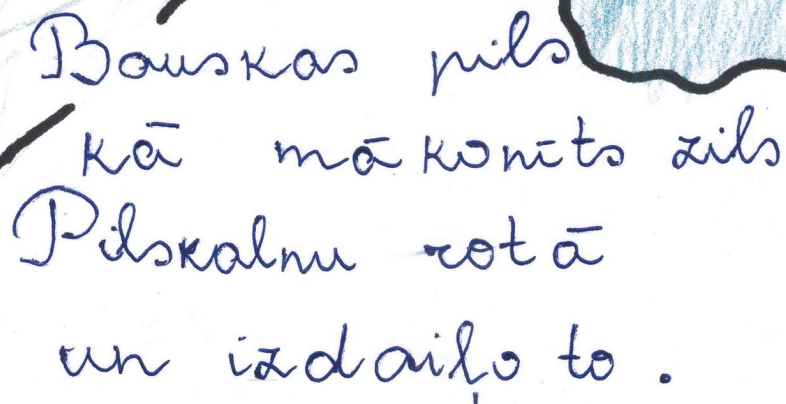 Bauskas pils
kā mākonīts zils
Pilskalnu rotā
un izdaiļo to.